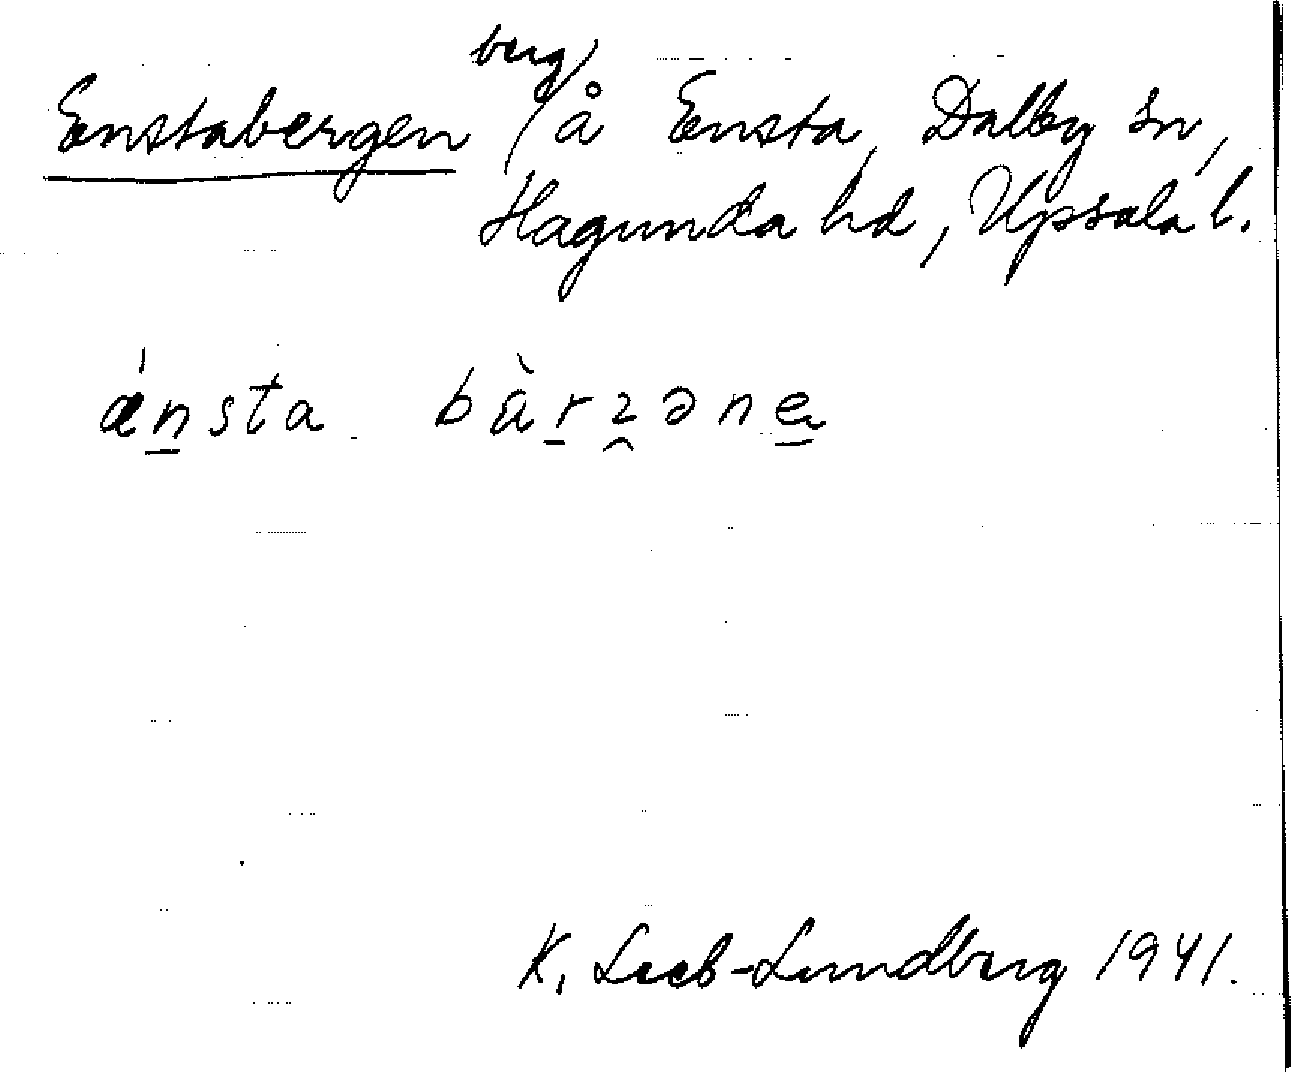 Enstabergen berg/ å Ensta, Dalby sn,
Hagunda hd, Upsala l.
ǽn̲sta bä̀r̲ʒ̯əne̲
K. Leeb-Lundberg 1941.